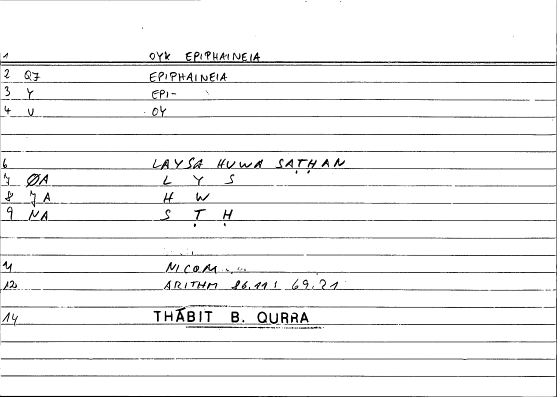 1 OYK EPIPHAINEIA
2 Q7 EPIPHAINEIA
3 Y EPI-
4 U OY
6 LAYSA HUWA SAṬḤAN
7 ØA L Y S
8 7A H W
9 NA S Ṭ Ḥ
11 NICOM...
12 ARITHM 86.11; 69.21
14 THĀBIT B. QURRA